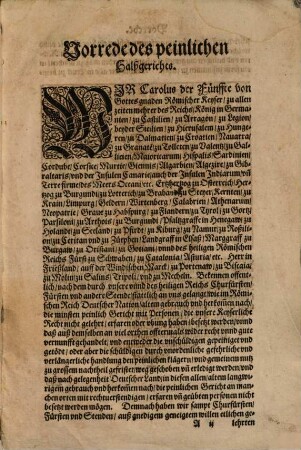 Vorrede des peinlichen
Halßgerichts.
WIR Carolus der Fünffte von
Gottes gnaden Römischer Keyser / zu allen
zeiten mehrer des Reichs / König in Germa-
nien / zu Castilien / zu Arragon / zu Legion /
beyder Sicilien / zu Hierusalem / zu Hunge-
ren / zu Dalmatien / zu Croatien / Nauarra /
zu Granaten / zu Tolleten / zu Valentz / zu Gal-
licien / Maioricarum / Hispalis / Sardinien /
Cordube / Corsice / Murtie / Giennis / Algarbien / Algezire / zu Gib-
raltaris / vnd der Insulen Canarie / auch der Insulen Indiarum / vnnd
Terre firme des Meers Oceani / etc. Ertzhertzog zu Osterreich / Her-
tzog zu Burgundi / zu Lotterick / zu Brabandt / zu Steyer / Kernten / zu
Krain / Limpurg / Geldern / Wirtenberg / Calabrien / Athenarum /
Neopatrie / Graue zu Habspurg / zu Flandern / zu Tyrol / zu Gortz /
Parsiloni / zu Arthoys / zu Burgundi / Pfaltzgraffe in Henegaw / zu
Holandt / zu Seelandt / zu Pfirdt / zu Kiburg / zu Namur / zu Rossili-
on / zu Ceritan vnd zu Zutphen / Landtgraff in Elsaß / Marggraff zu
Burgaw / zu Oristani / zu Gotiani / vnnd des heiligen Römischen
Reichs Fürst zu Schwaben / zu Catalonia / Asturia / etc. Herr in
Frießlandt / auff der Windischen Marck / zu Portenaw / zu Biscaia /
zu Molin / zu Salins / Tripoli / vnd zu Mecheln. Bekennen öffent-
lich / nach dem durch vnsere vnd des heiligen Reichs Churfürsten /
Fürsten vnd andere Stende / stattlich an vns gelangt / wie im Römi-
schen Reich Deutscher Nation / altem gebrauch vnd herkommen nach /
die meinsten peinlich Gericht mit Personen / die vnsere Keyserliche
Recht nicht gelehrt / erfaren oder übung haben / besetzt werden / vnd
daß auß demselben an viel orthen offtermals wider recht vnnd gute
vernunfft gehandelt / vnd entweder die vnschüldigen gepeiniget vnd
getödt / oder aber die schüldigen durch vnordenliche gefehrliche vnd
verlängerliche handlung den peinlichen klägern / vnd gemeinem nutz
zu grossem nachtheil gefristet / weg geschoben vnd erledigt werden / vnd
daß nach gelegenheit Deutscher Landt in diesen alten / altem langwi-
rigen gebrauch vnd herkommen nach / die peinlichen Gericht an man-
chen orten mit rechtuerstendigen / erfaren vnd geübten personen nicht
besetzt werden mögen. Demnach haben wir sampt Churfürsten /
Fürsten vnd Stenden / auß gnedigem geneigtem willen etlichen ge-
A ij lehrten